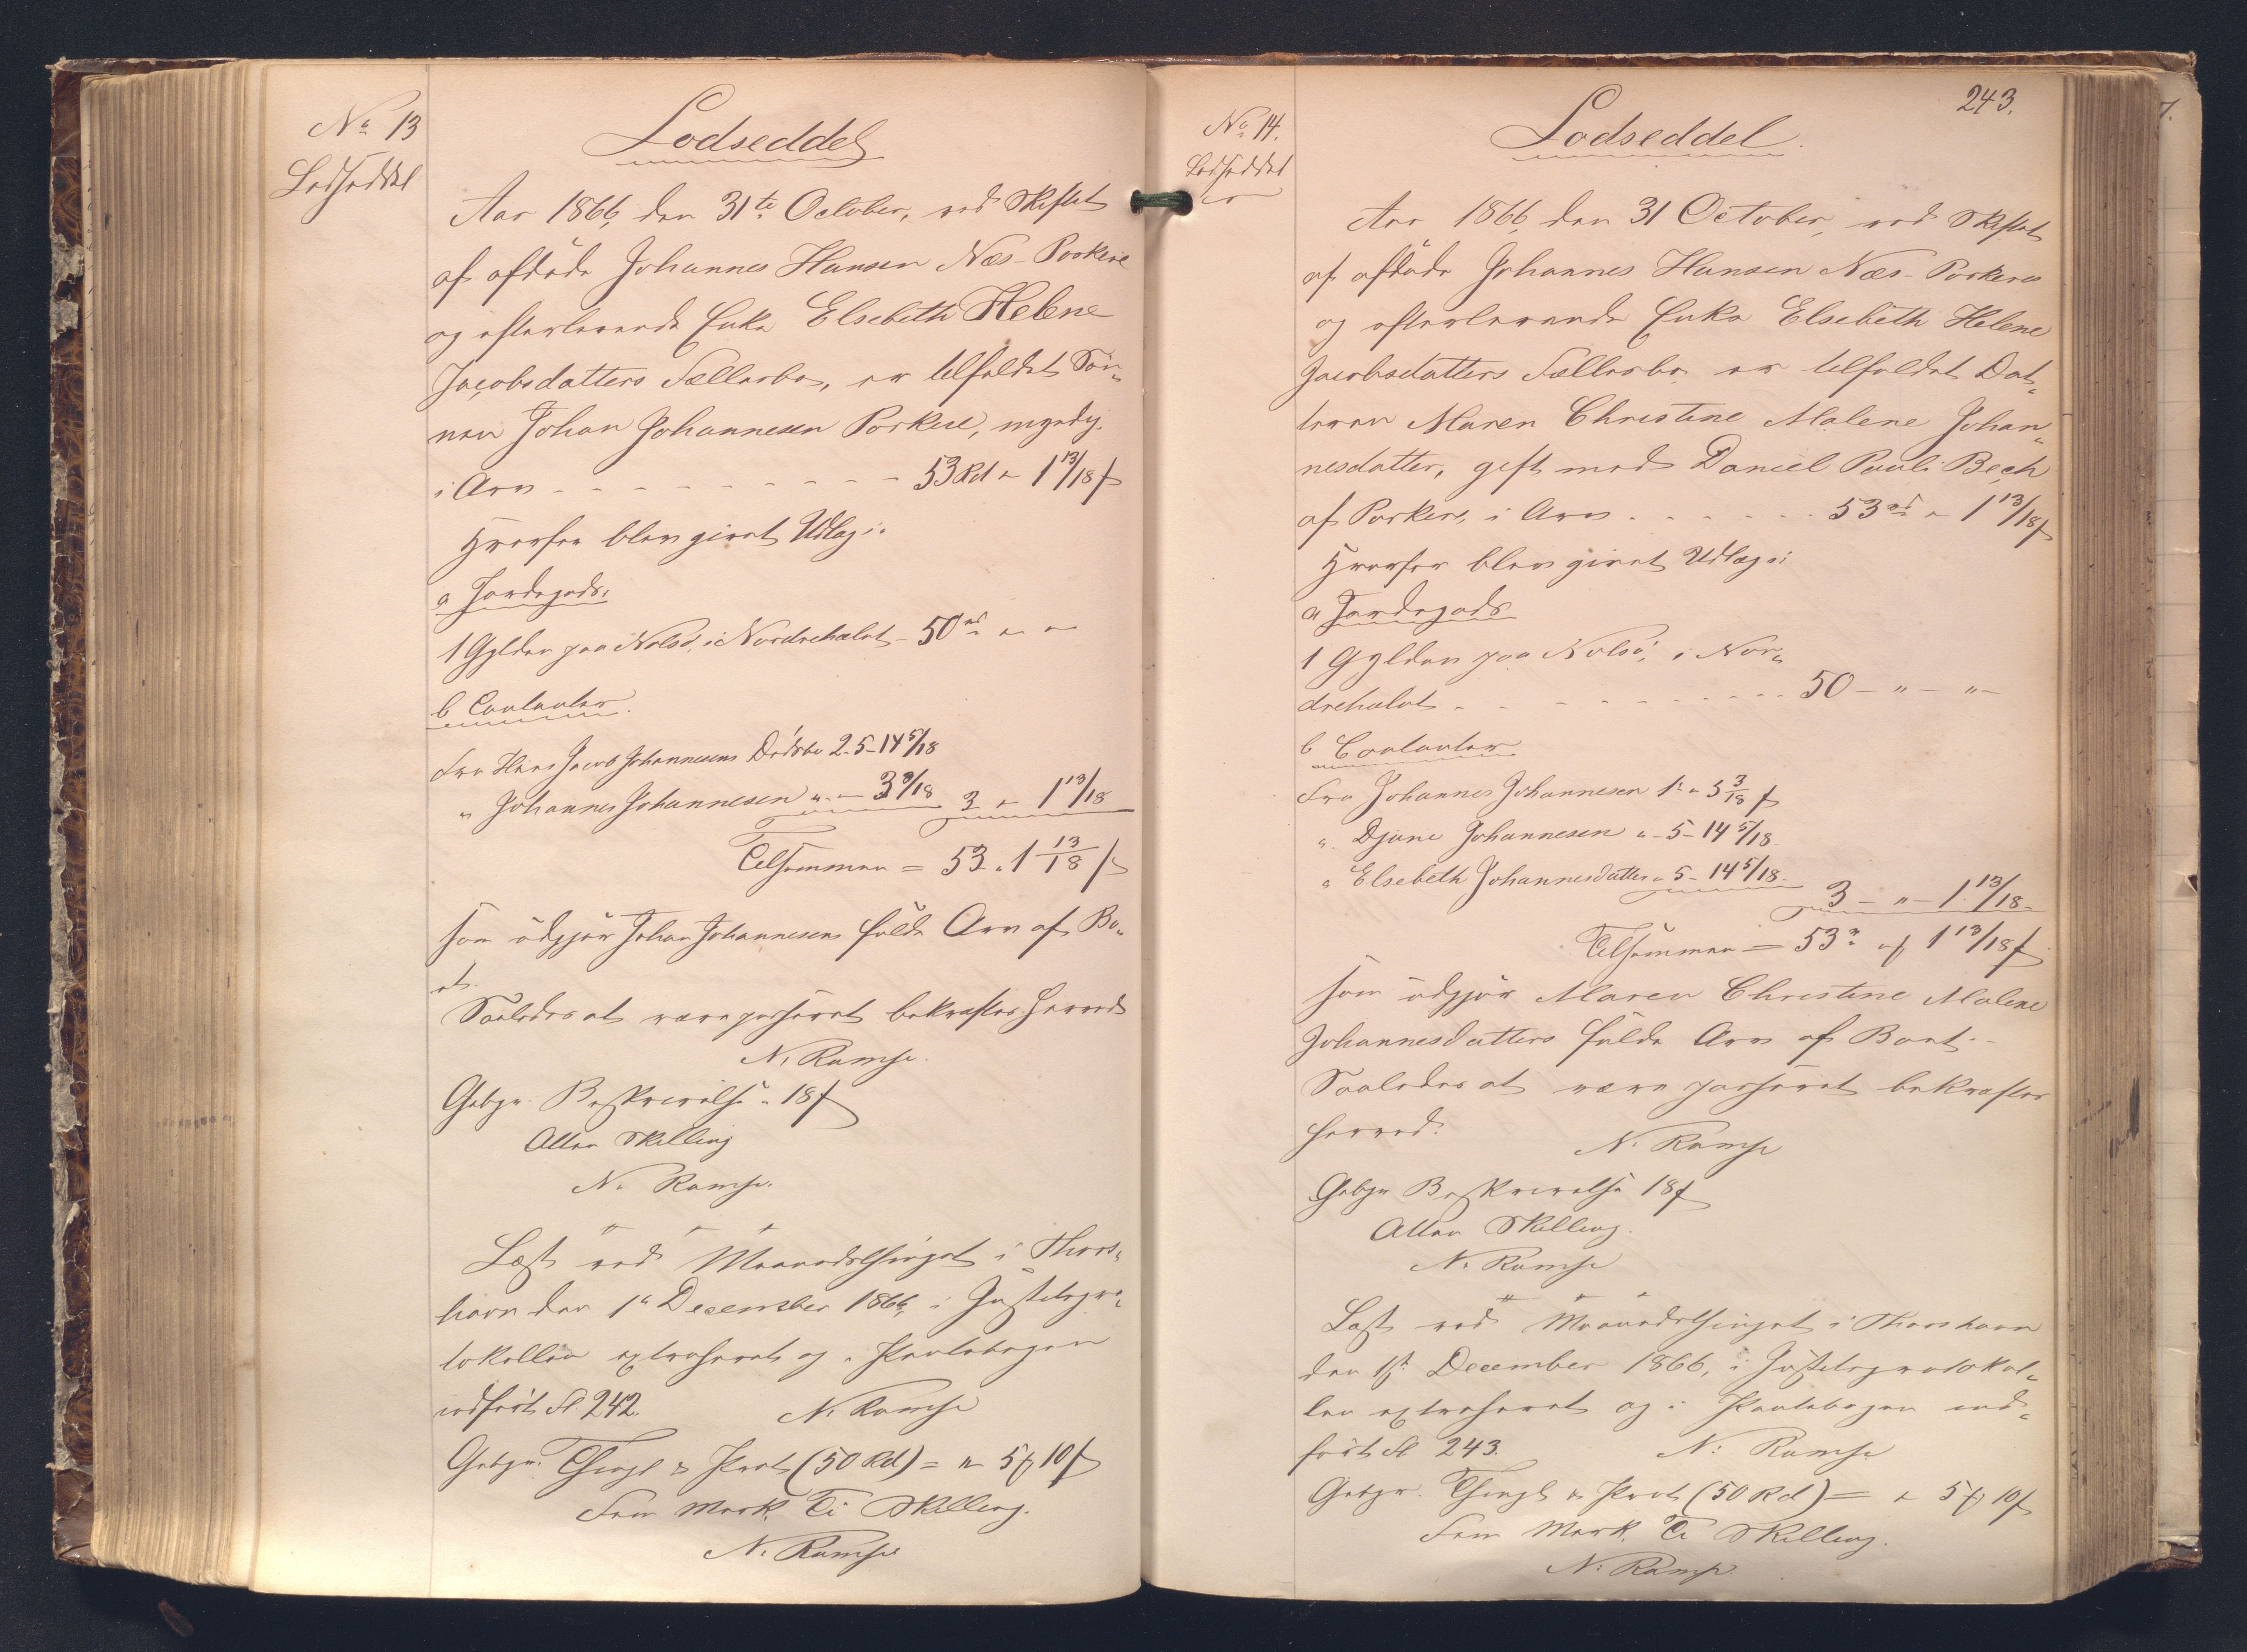 No 13
Lodseddel
Lodseddel
Aar 1866, den 31te October, ved Skiftet
af afdøde Johannes Hansen Næs-Porkere
og efterlevende Enke Elsebeth Helene
Jacobsdatters Fællesbo, er tilfaldet Søn„
nen Johan Johannesen Porkere, myndig,
i Arv - - - - - - - - - 53 Rd „ 1 13/18 ſ
Hvorfor blev givet Udlæg i:
a Jordegods.
1 Gylden paa Nolsö, i Nordrehalvt - 50 rd „ „
b Contanter.
Fra Hans Jacob Johannesens Dødsbo 2-5-14 5/18
„ Johannes Johannesen „ - 3 8/18 3 „ 1 13/18
Tilsammen = 53 „ 1 13/18 ſ
som udgjør Johan Johannesens fulde Arv af Bo„
et.
Saaledes at være passeret bekræftes herved
N. Ramse.
Gebyr Beskrivelse „ 18 ſ
Atten Skilling
N. Ramse.
Læst ved Maanedsthinget i Thors„
havn den 1te December 1866, i Justitspro„
tokollen extraheret og i Pantebogen
indført Fol 242. N. Ramse
Gebyr. Thingl & Prot (50 Rd) = „ 5 ₰ 10 ſ
Fem Mark, Ti Skilling.
N. Ramse
243.
No 14.
Lodseddel
Lodseddel.
Aar 1866, den 31 October, ved Skiftet
af afdøde Johannes Hansen Næs-Porkeres
og efterlevende Enke Elsebeth Helene
Jacobsdatters Fællesbo er tilfaldet Dat„
teren Maren Christine Malene Johan„
nesdatter, gift med Daniel Pauli Bech
af Porkere, i Arv . - - - - - - 53 rd „ 1 13/18 ſ
Hvorfor blev givet Udlæg i:
a Jordegods
1 Gylden paa Nolsö, i Nor„
drehalvt - - - - - - - - - 50 - „ - „ -
b Contanter
Fra Johannes Johannesen 1 „ „ 5 3/18 ſ
„ Djone Johannesen „ - 5 - 14 5/18
„ Elsebeth Johannesdatter „ 5 - 14 5/18 -
3 - „ - 1 13/18 -
Tilsammen = 53 „ „ 1 13/18 ſ
som udgjør Maren Christine Malene
Johannesdatters fulde Arv af Boet. -
Saaledes at være passeret bekræftes
herved.
N. Ramse
Gebyr Beskrivelse 18 ſ
Atten Skilling.
N. Ramse
Læst ved Maanedsthinget i Thorshavn
den 1st December 1866, i Justitsprotokol„
len extraheret og i Pantebogen ind„
ført Fol 243. N. Ramse
Gebyr. Thingl & Prot (50 Rd) = „ 5 ₰ 10 ſ
Fem Mark, Ti Skilling.
N. Ramse